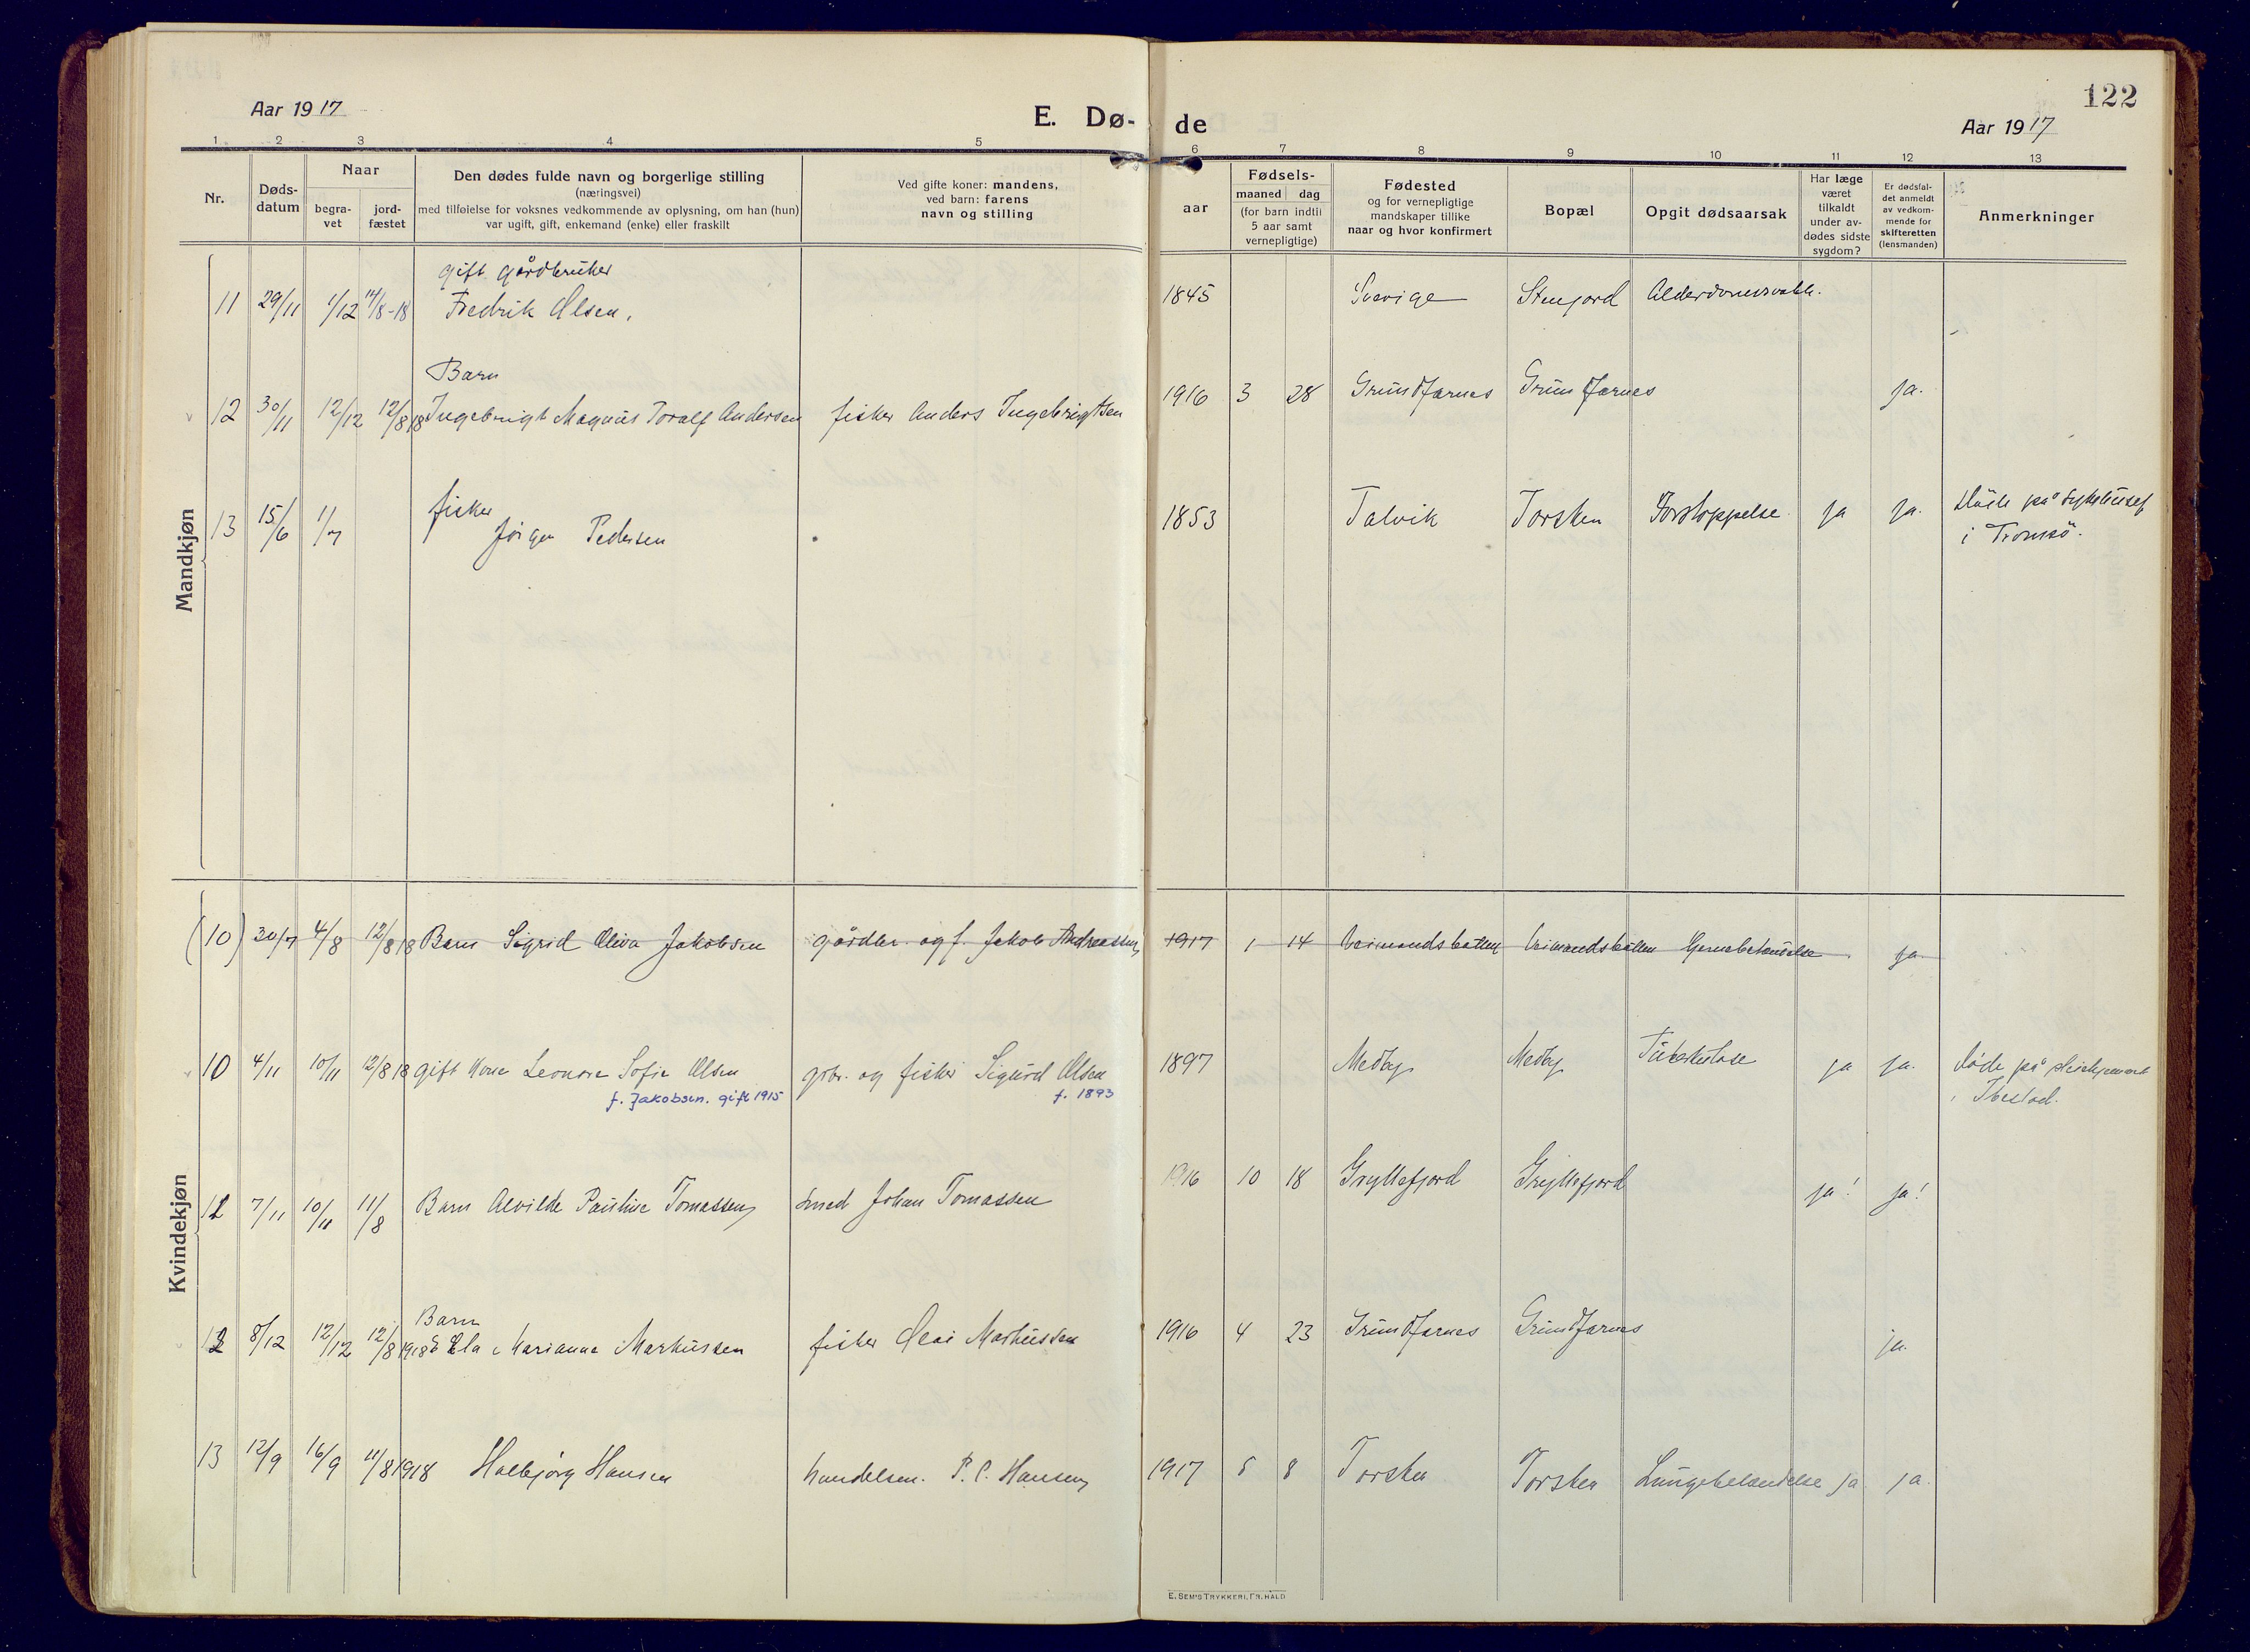 122
Aar 1917 E. Dø- de Aar 1917
1 2 3 4 5 6 7 8 9 10 11 12 13
Nr.
Døds-
datum
Naar
begra-
vet
jord-
fæstet
Den dødes fulde navn og borgerlige stilling
(næringsvei)
med tilføielse for voksnes vedkommende av oplysning, om han (hun)
var ugift, gift, enkemand (enke) eller fraskilt
Ved gifte koner: mandens,
ved barn: farens
navn og stilling
aar
Fødsels-
maaned dag
(for barn indtil
5 aar samt
vernepligtige)
Fødested
og for vernepligtige
mandskaper tillike
naar og hvor konfirmert
Bopæl
Opgit dødsaarsak
Har læge
været
tilkaldt
under av-
dødes sidste
sygdom?
Er dødsfal-
det anmeldt
av vedkom-
mende for
skifteretten
(lensmanden)
Anmerkninger
Mandkjøn
gift gårdbruker
11 29/11 1/12 14/8-18 Fredrik Olsen. 1845 Sverige Stenjord Alderdomssvakh.
Barn
12 30/11 12/12 12/8 18 Ingebrigt Magnus Toralf Andersen fisker Anders Ingebrigtsen 1916 3 28 Grundfarnes Grundfarnes ja.
fisker
13 15/6 1/7 Jörgen Pedersen 1853 Talvik Torsken Forstoppelse ja ja. Døde på sykehuset
i Tromsö.
Kvindekjøn
(10) 30/7 4/8 12/8 18 Barn Sigrid Oliva Jakobsen gårdbr. og f. Jakob Andreassen 1917 1 14 Veimandsbotten Veimandsbotten ja
10 4/11 10/11 12/8 18 gift kone Leonore Sofie Olsen gbr. og fisker Sigurd Olsen 1897 Medby Medby Tuberkulose ja ja. døde på pleiehjemmet
f. Jakobsen. gift 1915 f. 1893 i Ibestad.
11 7/11 10/11 11/8 Barn Alvilde Pauline Tomassen smed Johan Tomassen 1916 10 18 Gryllefjord Gryllefjord ja! ja!
Barn
12 8/12 12/12 12/8 1918 Ela Marianne Markussen fisker Olai Markussen 1916 4 23 Grundfarnes Grundfarnes ja.
13 12/9 16/9 11/8 1918 Halbjörg Hansen handelsm. P. C. Hansen 1917 5 8 Torsken Torsken Lungebetændelse ja ja.
E. SEM'S TRYKKERI, FR.HALD